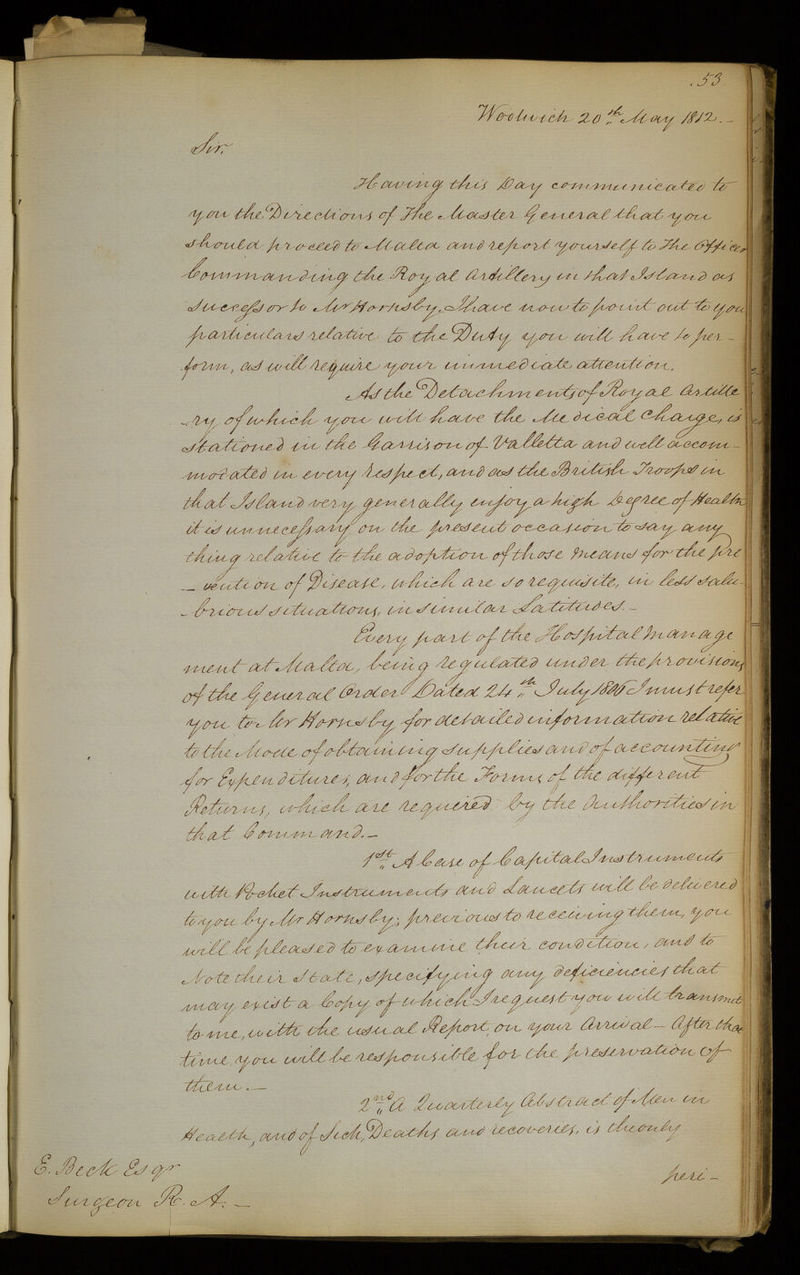 53
Woolwich 20th May 1812.-
Sir,
Having this Day communicated to
you the Directions of The Master General that you
should proceed to Malta and report yourself to The Officer
Commanding the Royal Artillery in that Island as
Successor to Mr Hornsby, I have now to point out to you
particulars relative to the Duty you will have to per-
form, as will require your immediate attention.
As the Detachments of Royal Artille
-ry of which you will have the Medical Charge, is
stationed in the Garrison of Valletta and well accom-
modated in every respect, and as the British Troops in
that Island very generally enjoy a high Degree of Health
it is unnecessary on the present occasion to say any
thing relative to the adoption of those means for the pre
-vention of Disease, which are so requisite, in less salu-
-brious situations, in similar Latitudes.-
Every part of the Hospital manage
ment at Malta, being regulated under the provisions
of the General Order Dated 24th July I must refer
you to Mr Hornsby for detailed information relative
to the Mode of obtaining supplies and of accounting
for Expenditures, and for the Forms of the different
Returns, which are requered by the Authorities in
that Command.-
1st A Case of Capital Instruments
with Pocket Instruments and Lancets will be delivered
to you by Mr Hornsby; previous to receiving them, you
will be pleased to examine their condition, and to
Note their State, specifying any deficiencies that
may exist a Copy of which I request you will transmit
to me, with the usual Report on your Arrival- After that
time you will be responsible for the preservation of
them.-
2nd A Quarterly Abstract of Men in
Health, and of Sick, Deaths and recoveries, is the only
peri-
E. Beck Esqr
Surgeon R. A.-